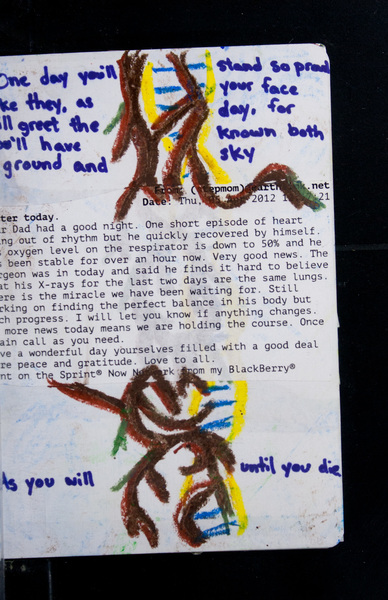 One day you'll stand so proud
ke they, as your face
ll greet the day, for
ou'll have known both
ground and sky
From: (stepmom)@earth .net
Date: Thu, 2012 1 21
ter today.
r Dad had a good night. One short episode of heart
ng out of rhythm but he quickly recovered by himself.
s oxygen level on the respirator is down to 50% and he
s been stable for over an hour now. Very good news. The
rgeon was in today and said he finds it hard to believe
at his X-rays for the last two days are the same lungs.
ere is the miracle we have been waiting for. Still
rking on finding the perfect balance in his body but
ch progress. I will let you know if anything changes.
more news today means we are holding the course. Once
ain call as you need.
ve a wonderful day yourselves filled with a good deal
re peace and gratitude. Love to all.
nt on the Sprint® Now Network from my BlackBerry®
As you will until you die